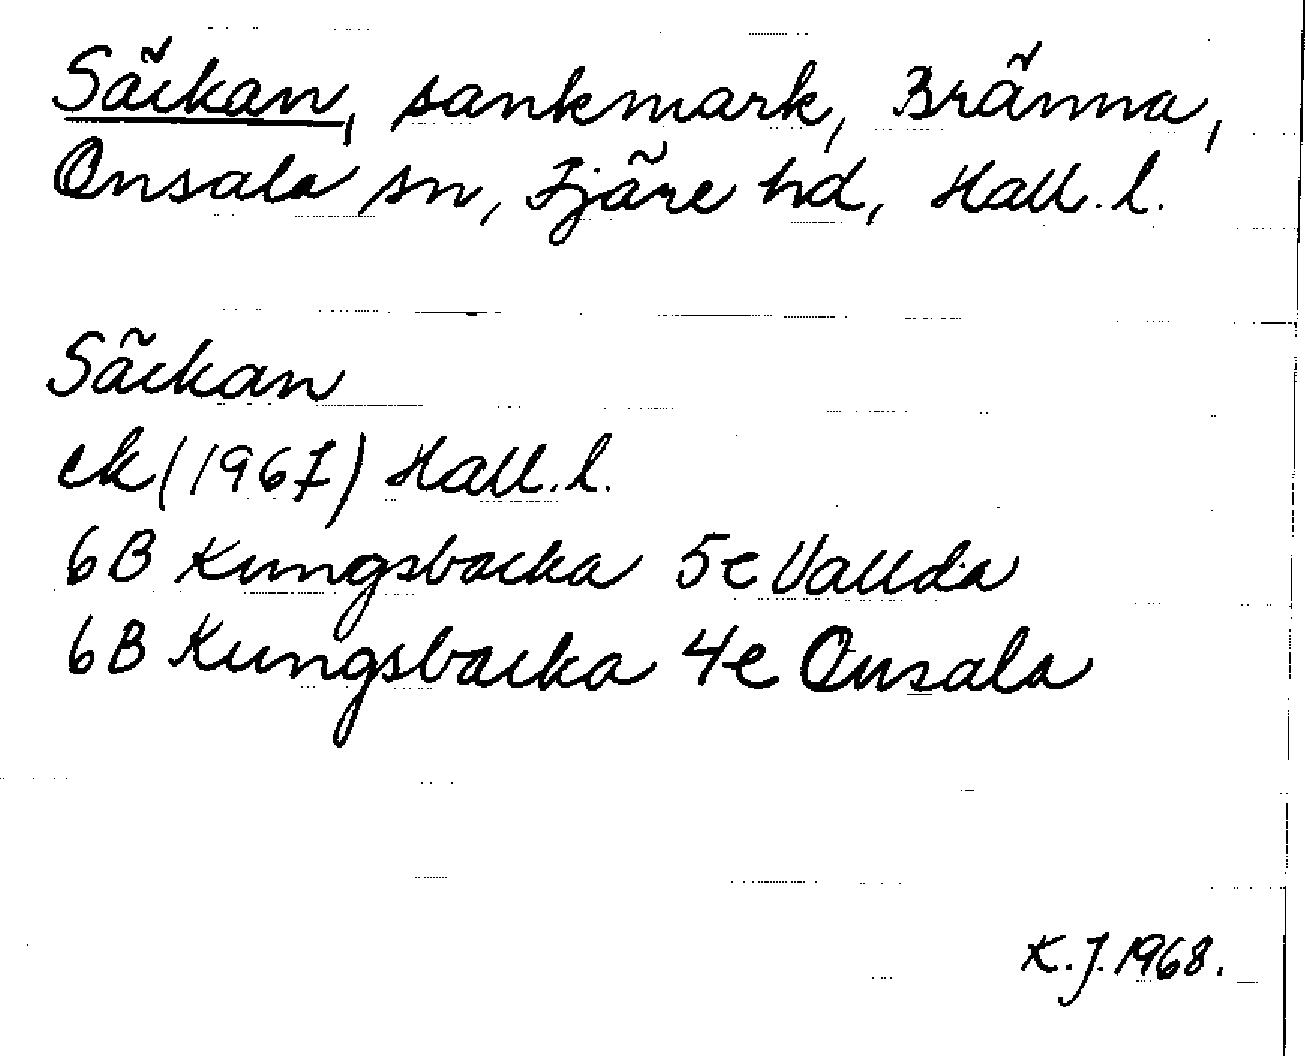 Säckan, sankmark, Bränna,
Onsala sn, Fjäre hd, Hall. l.
Säckan
ek (1967) Hall. l.
6B Kungsbacka 5e Vallda
6B Kungsbacka 4e Onsala
K.J. 1968.